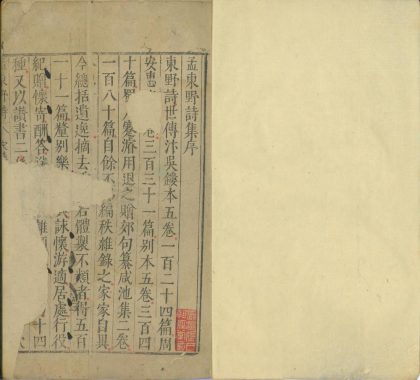 孟東野詩集序
東野詩世傳汴吳鏤本五卷一百二十四篇周
安惠 卷三百三十一篇别本五卷三百四
十篇蜀 蹇濬用退之贈郊句纂咸池集二卷
一百八十篇自餘不 編秩雜錄之家家自異
今總括遺逸摘去 若體製不類者得五百
一十一篇釐别樂 詠懷游適居處行役
紀贈懷寄酬荅 雜 十四
種又以讚書二